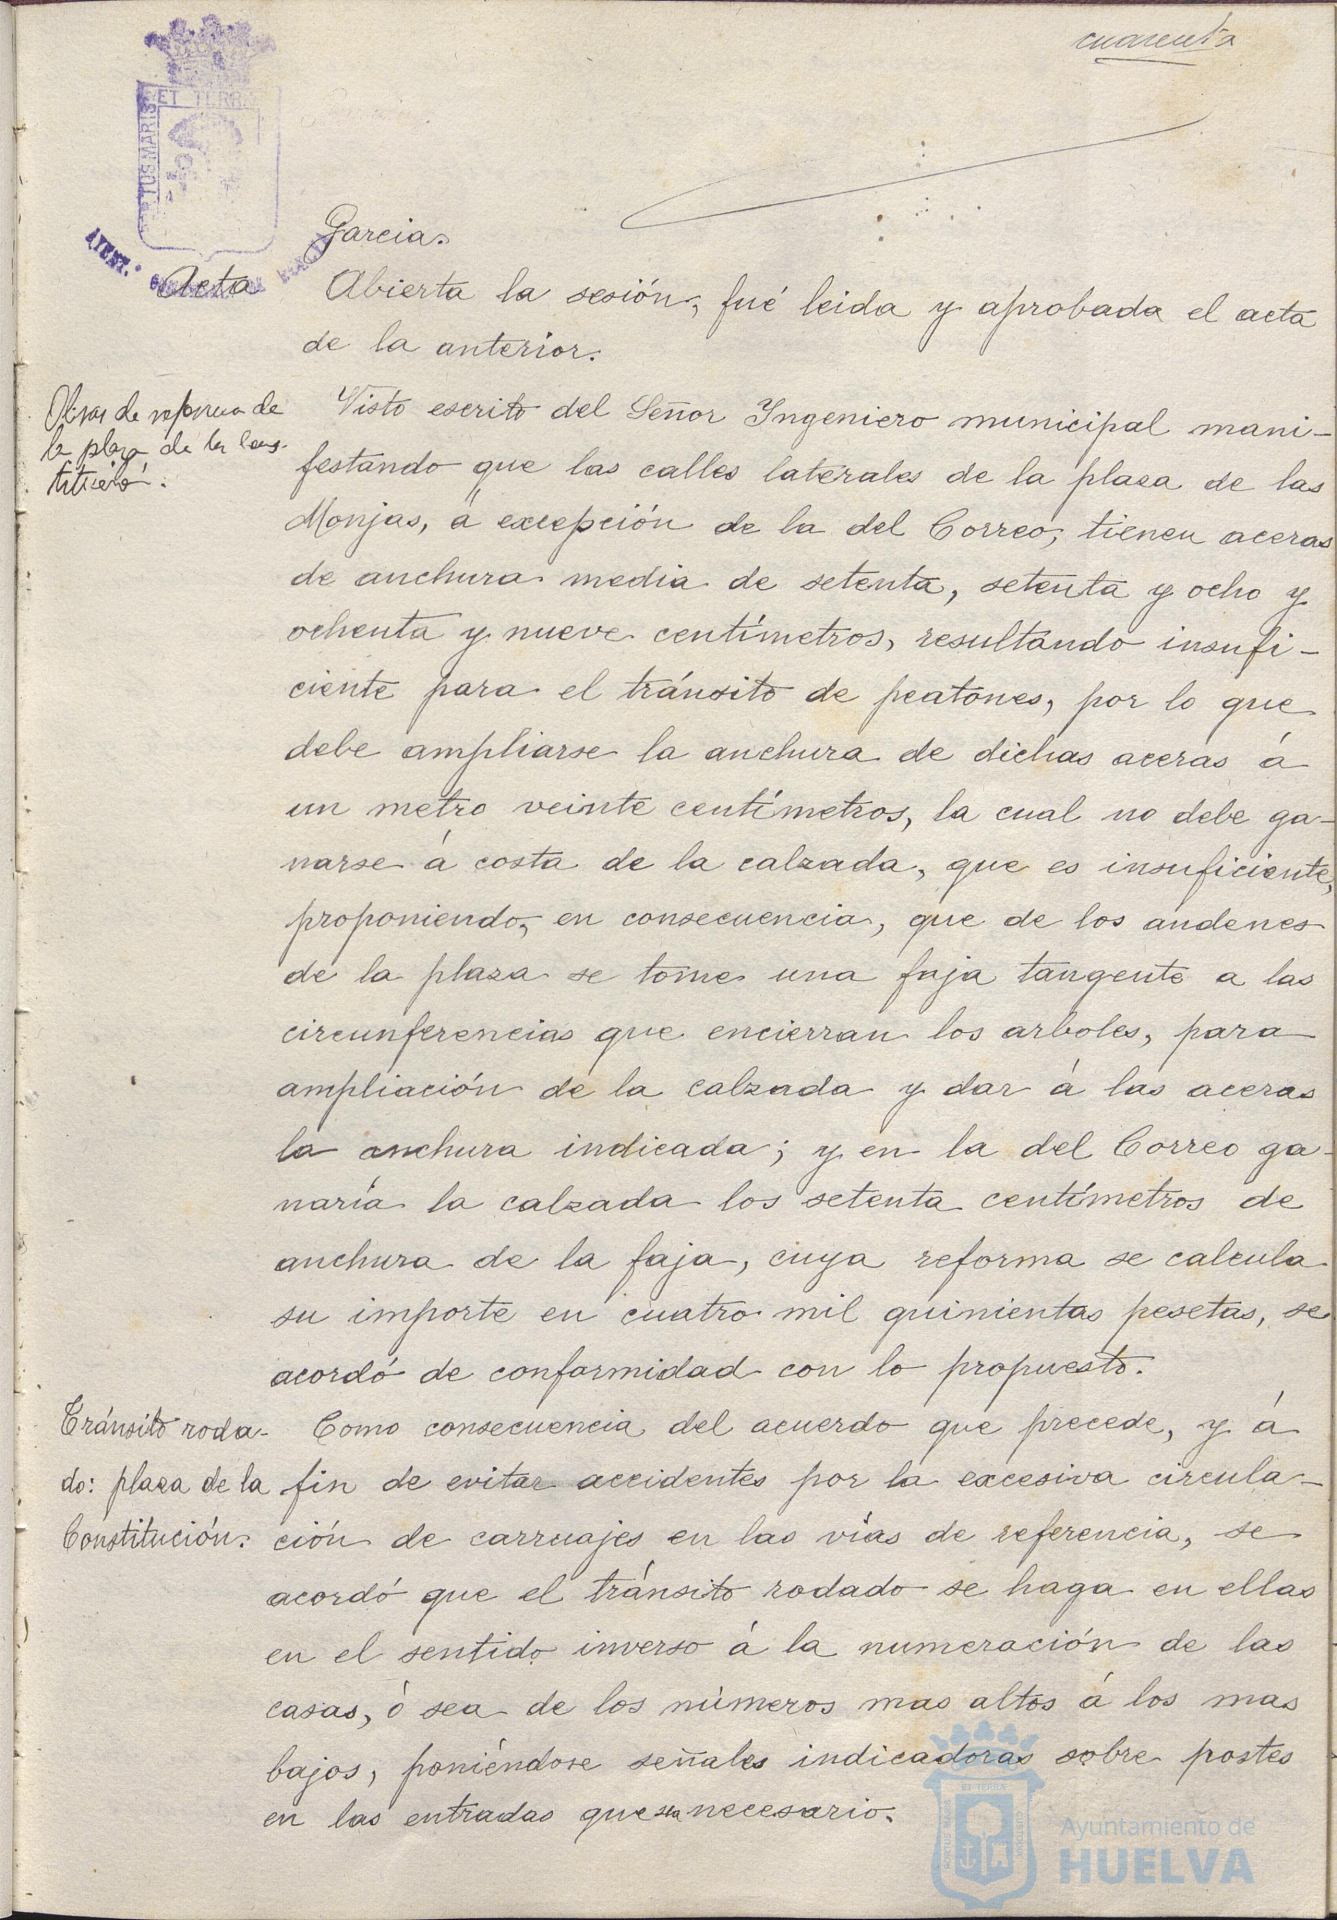 cuarenta
ET TERRA
TUS MARIS
AYUNT.
Garcia.
Acta
Abierta la sesión, fué leida y aprobada el acta
de la anterior.
Obras de reforma de
la plaza de la Cons-
titución.
Visto escrito del Señor Yngeniero municipal mani-
festando que las calles laterales de la plaza de las
Monjas, á excepción de la del Correo, tienen aceras
de anchura media de setenta, setenta y ocho y
ochenta y nueve centímetros, resultando insufi-
ciente para el tránsito de peatones, por lo que
debe ampliarse la anchura de dichas aceras á
un metro veinte centímetros, la cual no debe ga-
narse á costa de la calzada, que es insuficiente,
proponiendo, en consecuencia, que de los andenes
de la plaza se tome una faja tangente a las
circunferencias que encierran los arboles, para
ampliación de la calzada y dar á las aceras
la anchura indicada; y en la del Correo ga-
naría la calzada los setenta centímetros de
anchura de la faja, cuya reforma se calcula
su importe en cuatro mil quinientas pesetas, se
acordó de conformidad con lo propuesto.
Tránsito roda-
do: plaza de la
Constitución.
Como consecuencia del acuerdo que precede, y á
fin de evitar accidentes por la excesiva circula-
ción de carruajes en las vías de referencia, se
acordó que el tránsito rodado se haga en ellas
en el sentido inverso á la numeración de las
casas, ó sea de los números mas altos á los mas
bajos, poniéndose señales indicadoras sobre postes
en las entradas que sea necesario.
ET TERRA
PORTUS MARIS
CUSTODIA
Ayuntamiento de
HUELVA